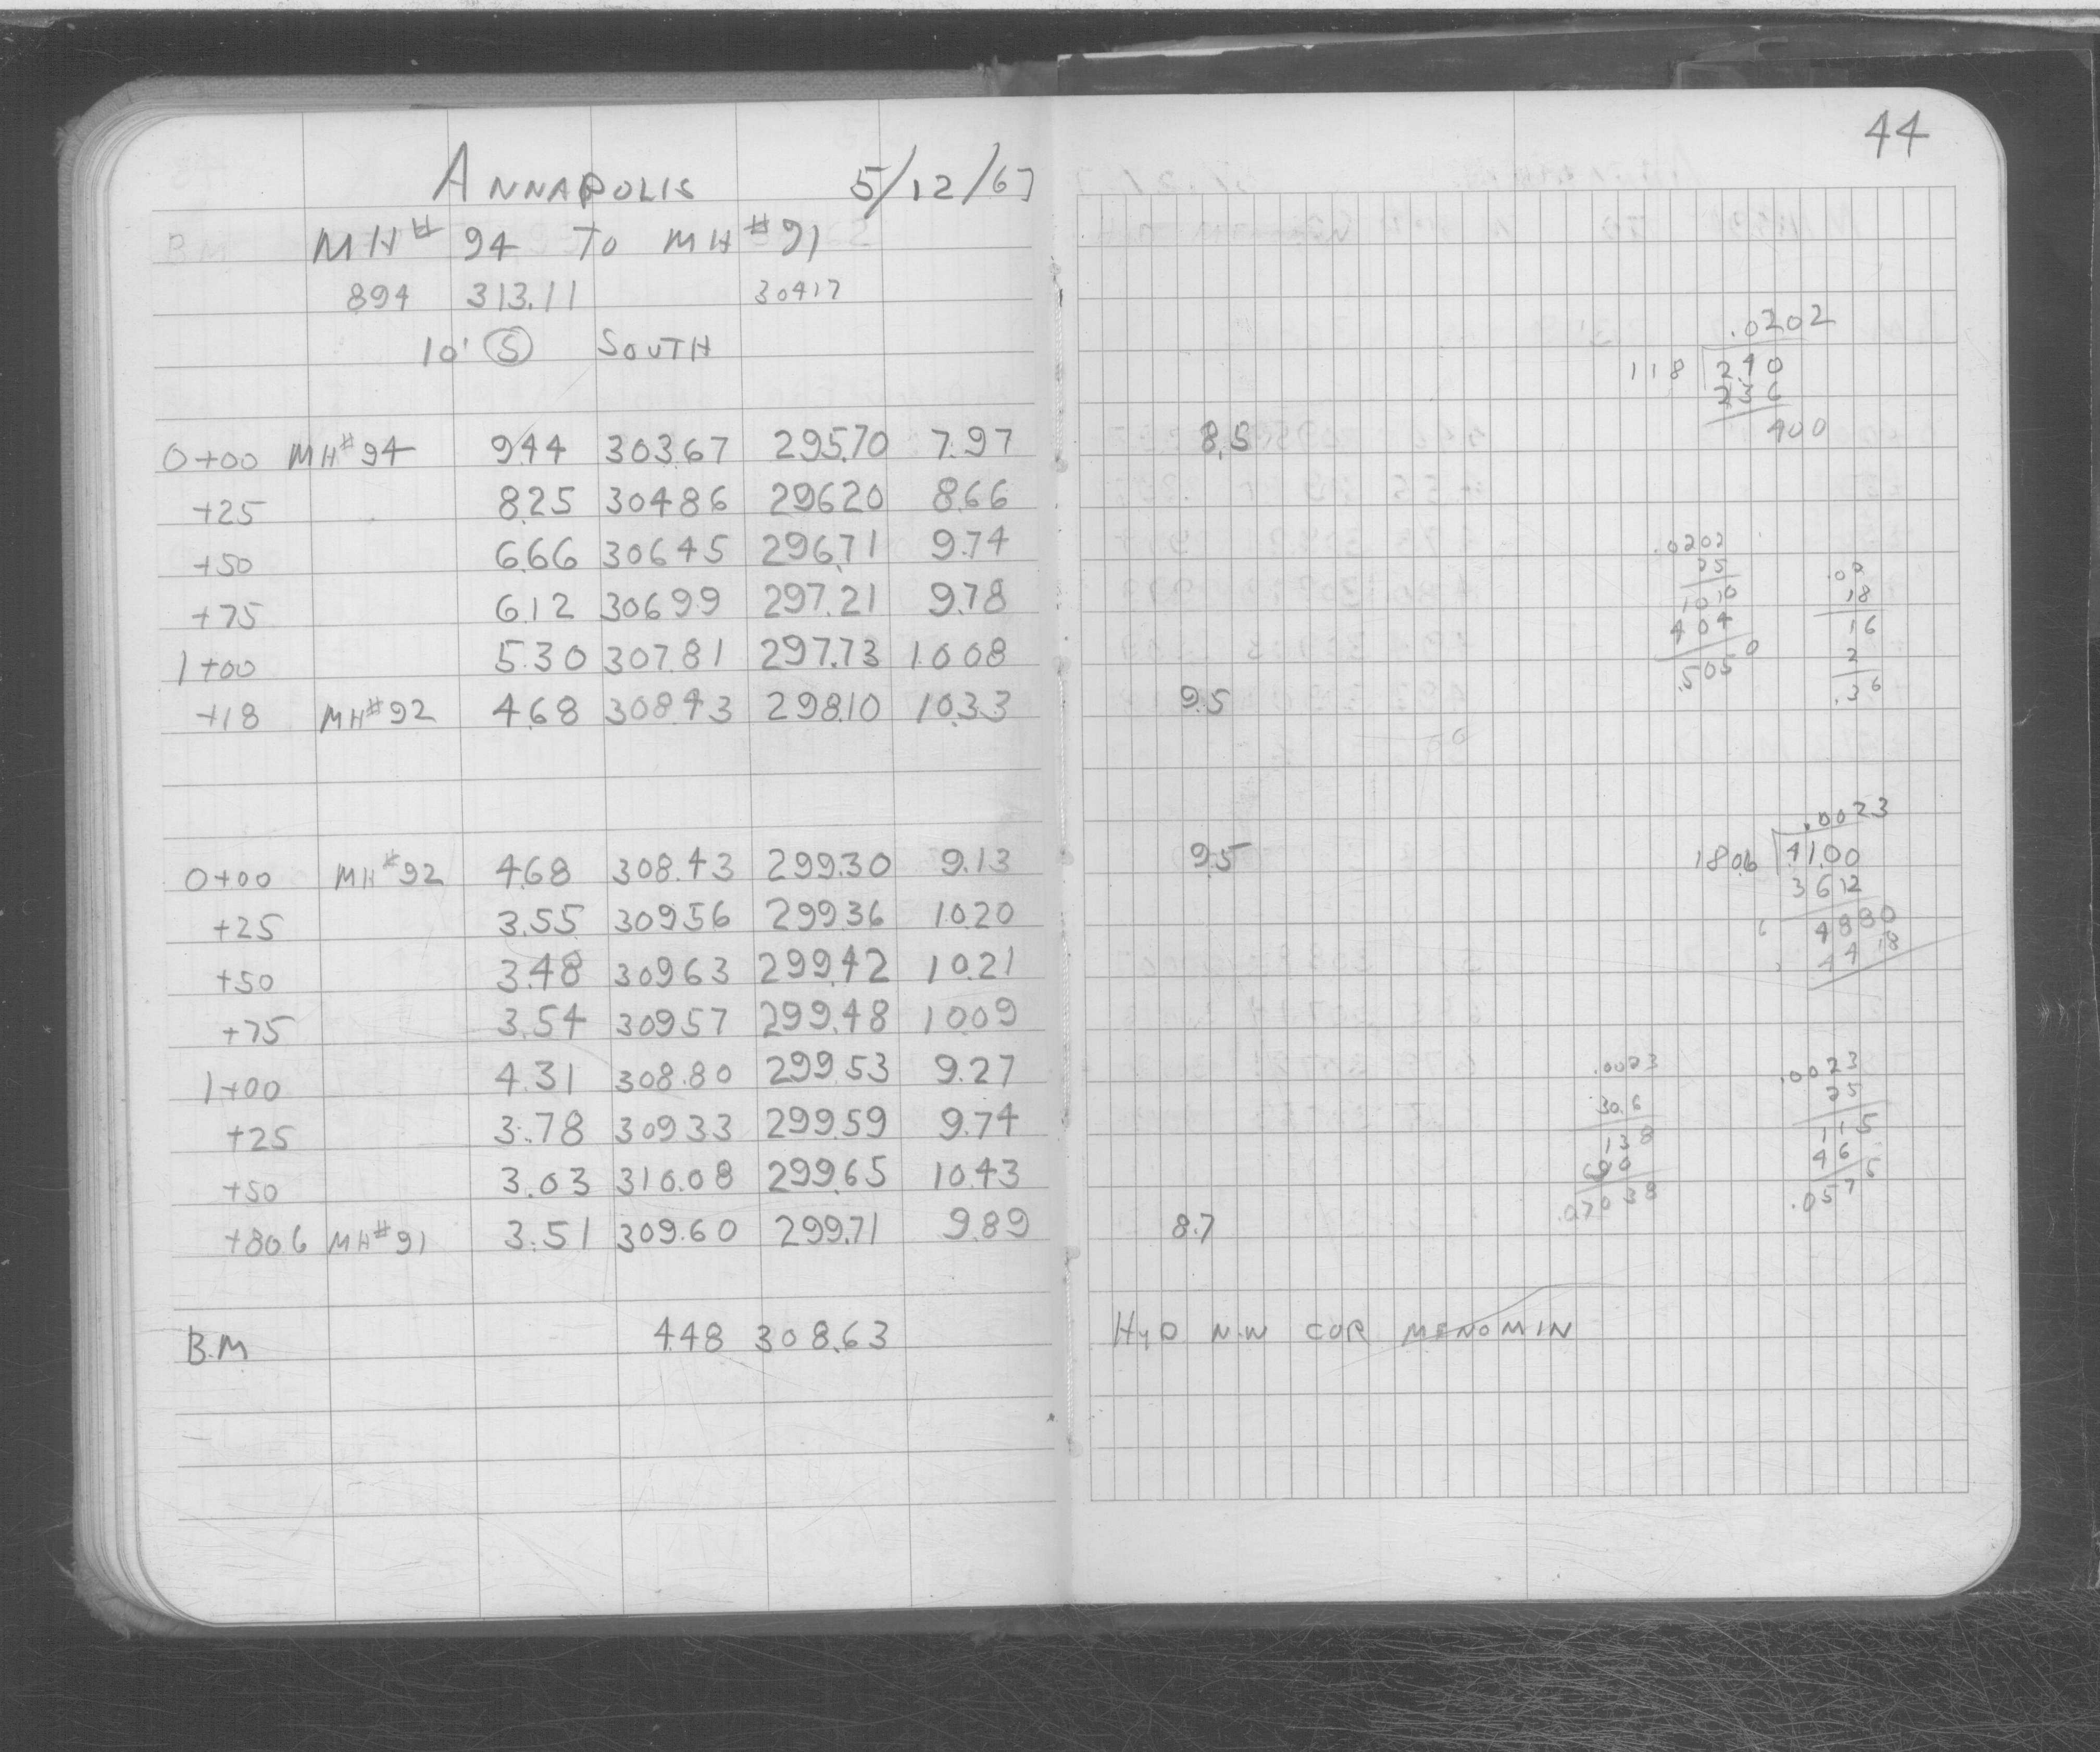 44
ANNAPOLIS 5/12/67
MH# 94 TO MH# 91
894 313.11 30417
10' S SOUTH
0+00 MH#94 944 303.67 295.70 7.97 8.5
+25 825 30486 29620 866
+50 666 30645 296.71 9.74
+75 612 30699 297.21 9.78
1+00 5.30 307.81 297.73 10.08
+18 MH#92 4.68 308.43 298.10 10.33 9.5
0+00 MH#92 468 308.43 299.30 9.13 9.5
+25 3.55 30956 29936 10.20
+50 3.48 30963 299.42 10.21
+75 3.54 30957 299.48 1009
1+00 4.31 308.80 299.53 9.27
+25 3.78 30933 299.59 9.74
+50 3.03 310.08 299.65 10.43
+80.6 MH#91 3.51 309.60 299.71 9.89 8.7
B.M 4.48 308.63 HYD N.W COR MENOMIN
.0202
118 240
236
400
.0202
25
1010
404
.5050
.02
18
16
2
.36
.0023
180.6 41.00
3612
4880
.0023
30.6
138
690
.07038
.0023
25
115
46
.0575